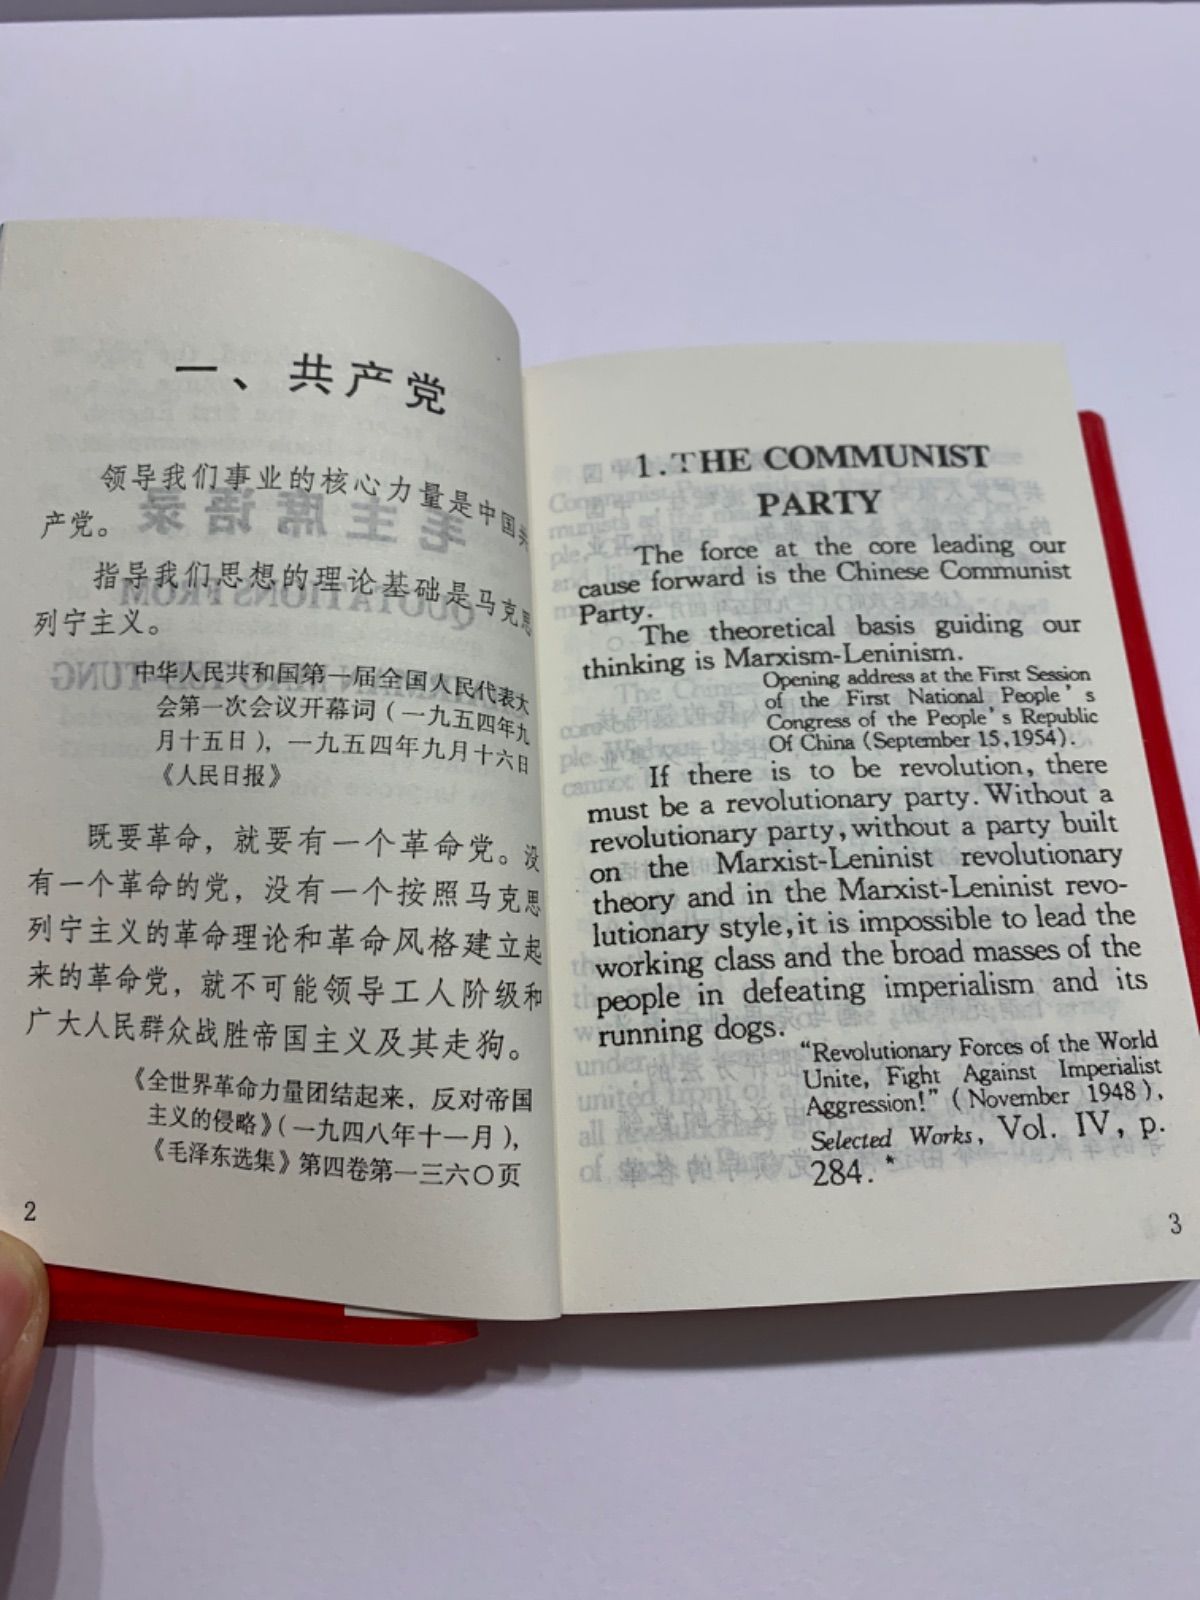 一、共产党
领导我们事业的核心力量是中国共
产党。
指导我们思想的理论基础是马克思
列宁主义。
中华人民共和国第一届全国人民代表大
会第一次会议开幕词（一九五四年九
月十五日），一九五四年九月十六日
《人民日报》
既要革命，就要有一个革命党。没
有一个革命的党，没有一个按照马克思
列宁主义的革命理论和革命风格建立起
来的革命党，就不可能领导工人阶级和
广大人民群众战胜帝国主义及其走狗。
《全世界革命力量团结起来，反对帝国
主义的侵略》（一九四八年十一月），
《毛泽东选集》第四卷第一三六〇页
2
1.THE COMMUNIST
PARTY
The force at the core leading our
cause forward is the Chinese Communist
Party.
The theoretical basis guiding our
thinking is Marxism-Leninism.
Opening address at the First Session
of the First National People's
Congress of the People's Republic
Of China (September 15,1954).
If there is to be revolution, there
must be a revolutionary party. Without a
revolutionary party, without a party built
on the Marxist-Leninist revolutionary
theory and in the Marxist-Leninist revo-
lutionary style, it is impossible to lead the
working class and the broad masses of the
people in defeating imperialism and its
running dogs.
"Revolutionary Forces of the World
Unite, Fight Against Imperialist
Aggression!" (November 1948),
Selected Works, Vol. IV, p.
284.*
3